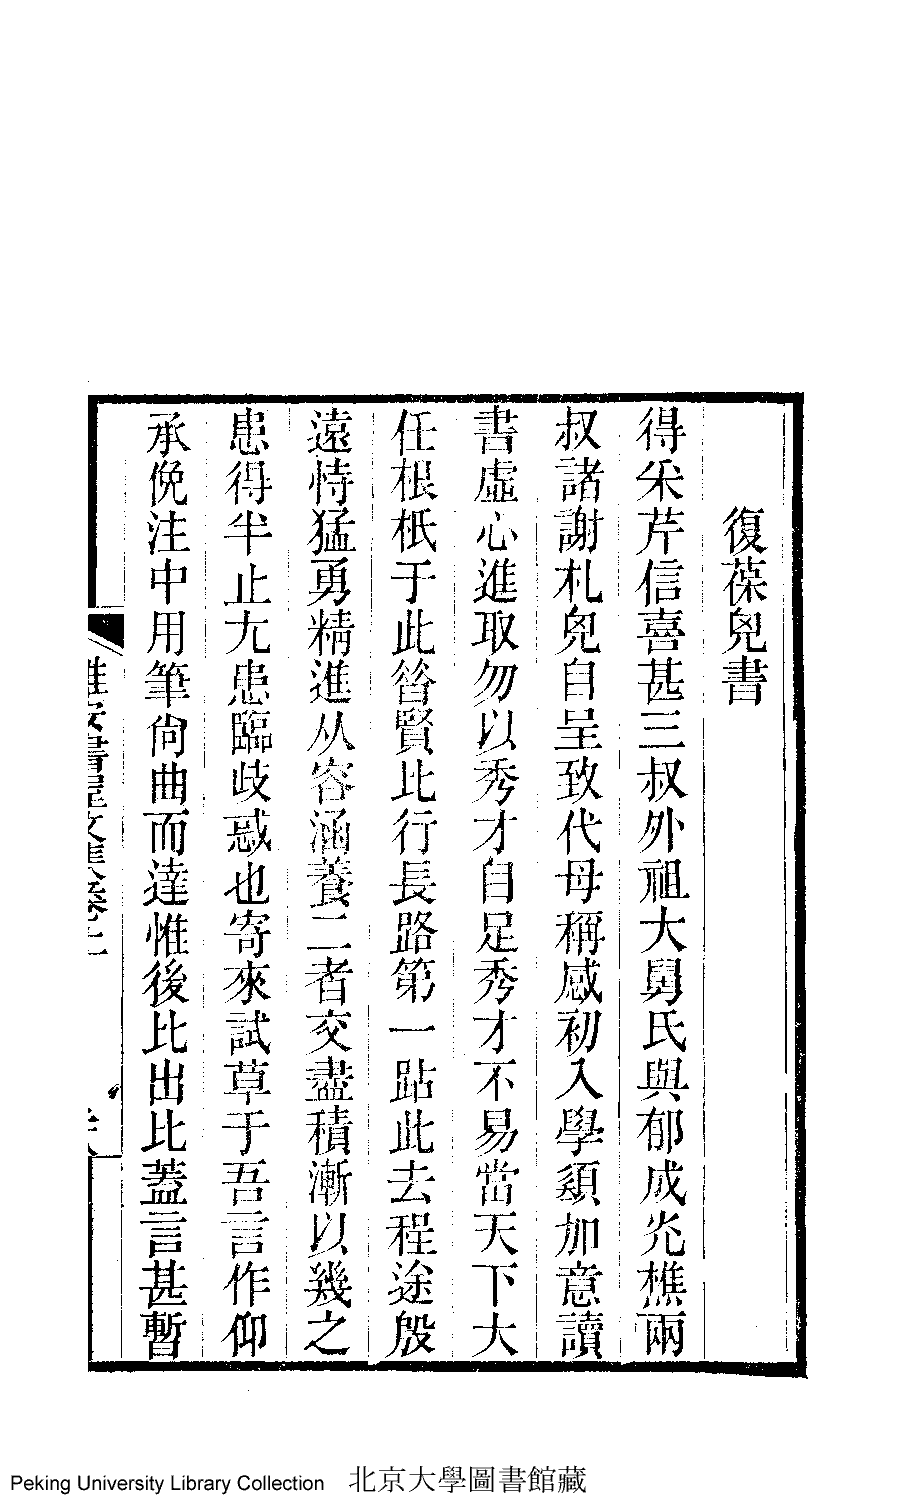 復葆兒書
得采芹信喜甚三叔外祖大舅氏與郁成炎樵兩
叔諸謝札兒自呈致代母稱感初入學須加意讀
書虛心進取勿以秀才自足秀才不易當天下大
任根柢于此昝賢比行長路第一跕此去程途殷
遠恃猛勇精進从容涵養二者交盡積漸以幾之
患得半止尤患臨歧惑也寄來試草于吾言作仰
承俛注中用筆尙曲而達惟後比出比蓋言甚暫
惟安書屋文集卷二
北京大學圖書館藏
Peking University Library Collection